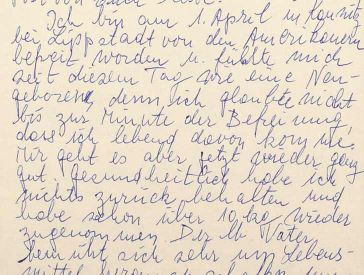 Ich bin am 1. April in Kaunitz
bei Lippstadt von den Amerikanern
befreit worden u. fühlte mich
seit diesem Tag wie eine Neu-
geborene, denn ich glaubte nicht
bis zur Minute der Befreiung,
dass ich lebend davon komme.
Mir geht es aber jetzt wieder ganz
gut. Gesundheitlich habe ich
nichts zurück behalten und
habe schon über 10 kg wieder
zugenommen. Der lb. Vater
bemüht sich sehr um Lebens-
mittel